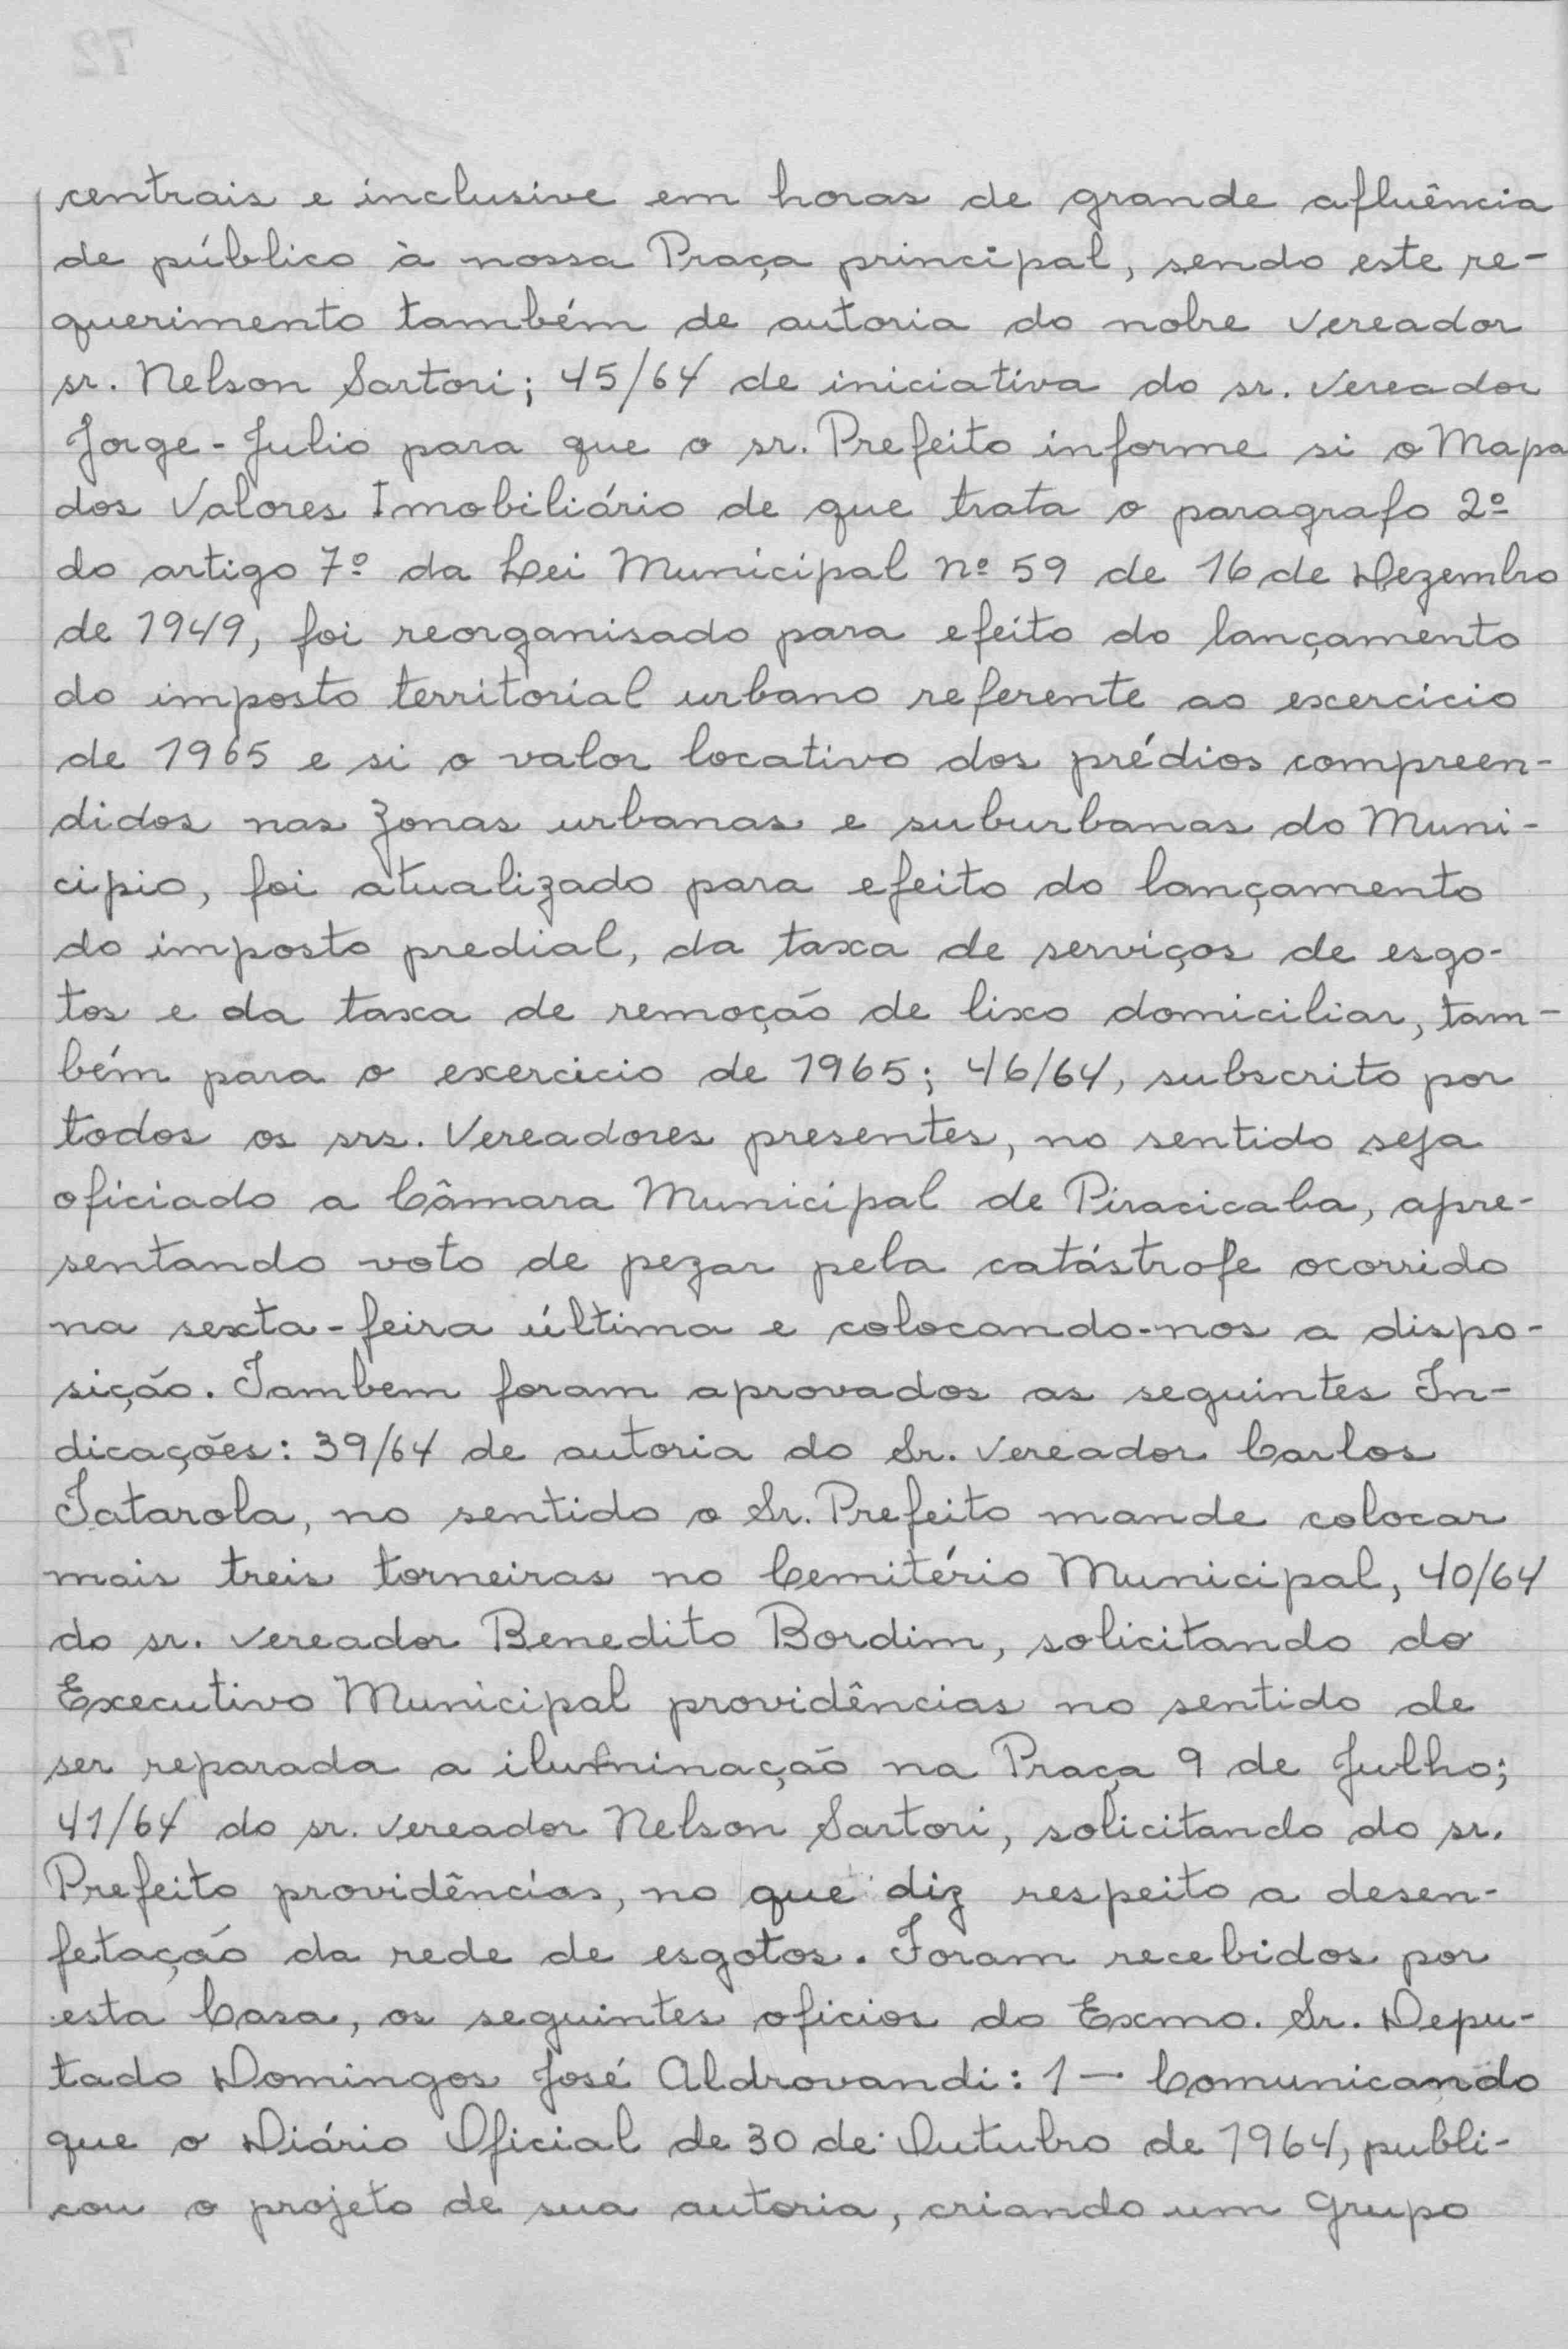 centrais e inclusive em horas de grande afluência
de público à nossa Praça principal, sendo este re-
querimento também de autoria do nobre vereador
sr. Nelson Sartori; 45/64 de iniciativa do sr. vereador
Jorge-Julio para que o sr. Prefeito informe si o Mapa
dos Valores Imobiliário de que trata o paragrafo 2º
do artigo 7º da Lei Municipal nº 59 de 16 de Dezembro
de 1949, foi reorganisado para efeito do lançamento
do imposto territorial urbano referente ao excercicio
de 1965 e si o valor locativo dos prédios compreen-
didos nas zonas urbanas e suburbanas do Muni-
cipio, foi atualizado para efeito do lançamento
do imposto predial, da taxa de serviços de esgo-
tos e da taxa de remoção de lixo domiciliar, tam-
bém para o exercicio de 1965; 46/64, subscrito por
todos os srs. Vereadores presentes, no sentido seja
oficiado a Câmara Municipal de Piracicaba, apre-
sentando voto de pezar pela catástrofe ocorrido
na sexta-feira última e colocando-nos a dispo-
sição. Tambem foram aprovados as seguintes In-
dicações: 39/64 de autoria do Sr. vereador Carlos
Tatarola, no sentido o Sr. Prefeito mande colocar
mais treis torneiras no Cemitério Municipal, 40/64
do sr. vereador Benedito Bordim, solicitando do
Executivo Municipal providências no sentido de
ser reparada a iluminação na Praça 9 de Julho;
41/64 do sr. vereador Nelson Sartori, solicitando do sr.
Prefeito providências, no que diz respeito a desen-
fetação da rede de esgotos. Foram recebidos por
esta Casa, os seguintes oficios do Exmo. Sr. Depu-
tado Domingos José Aldrovandi: 1 — Comunicando
que o Diário Oficial de 30 de Outubro de 1964, publi-
cou o projeto de sua autoria, criando um Grupo